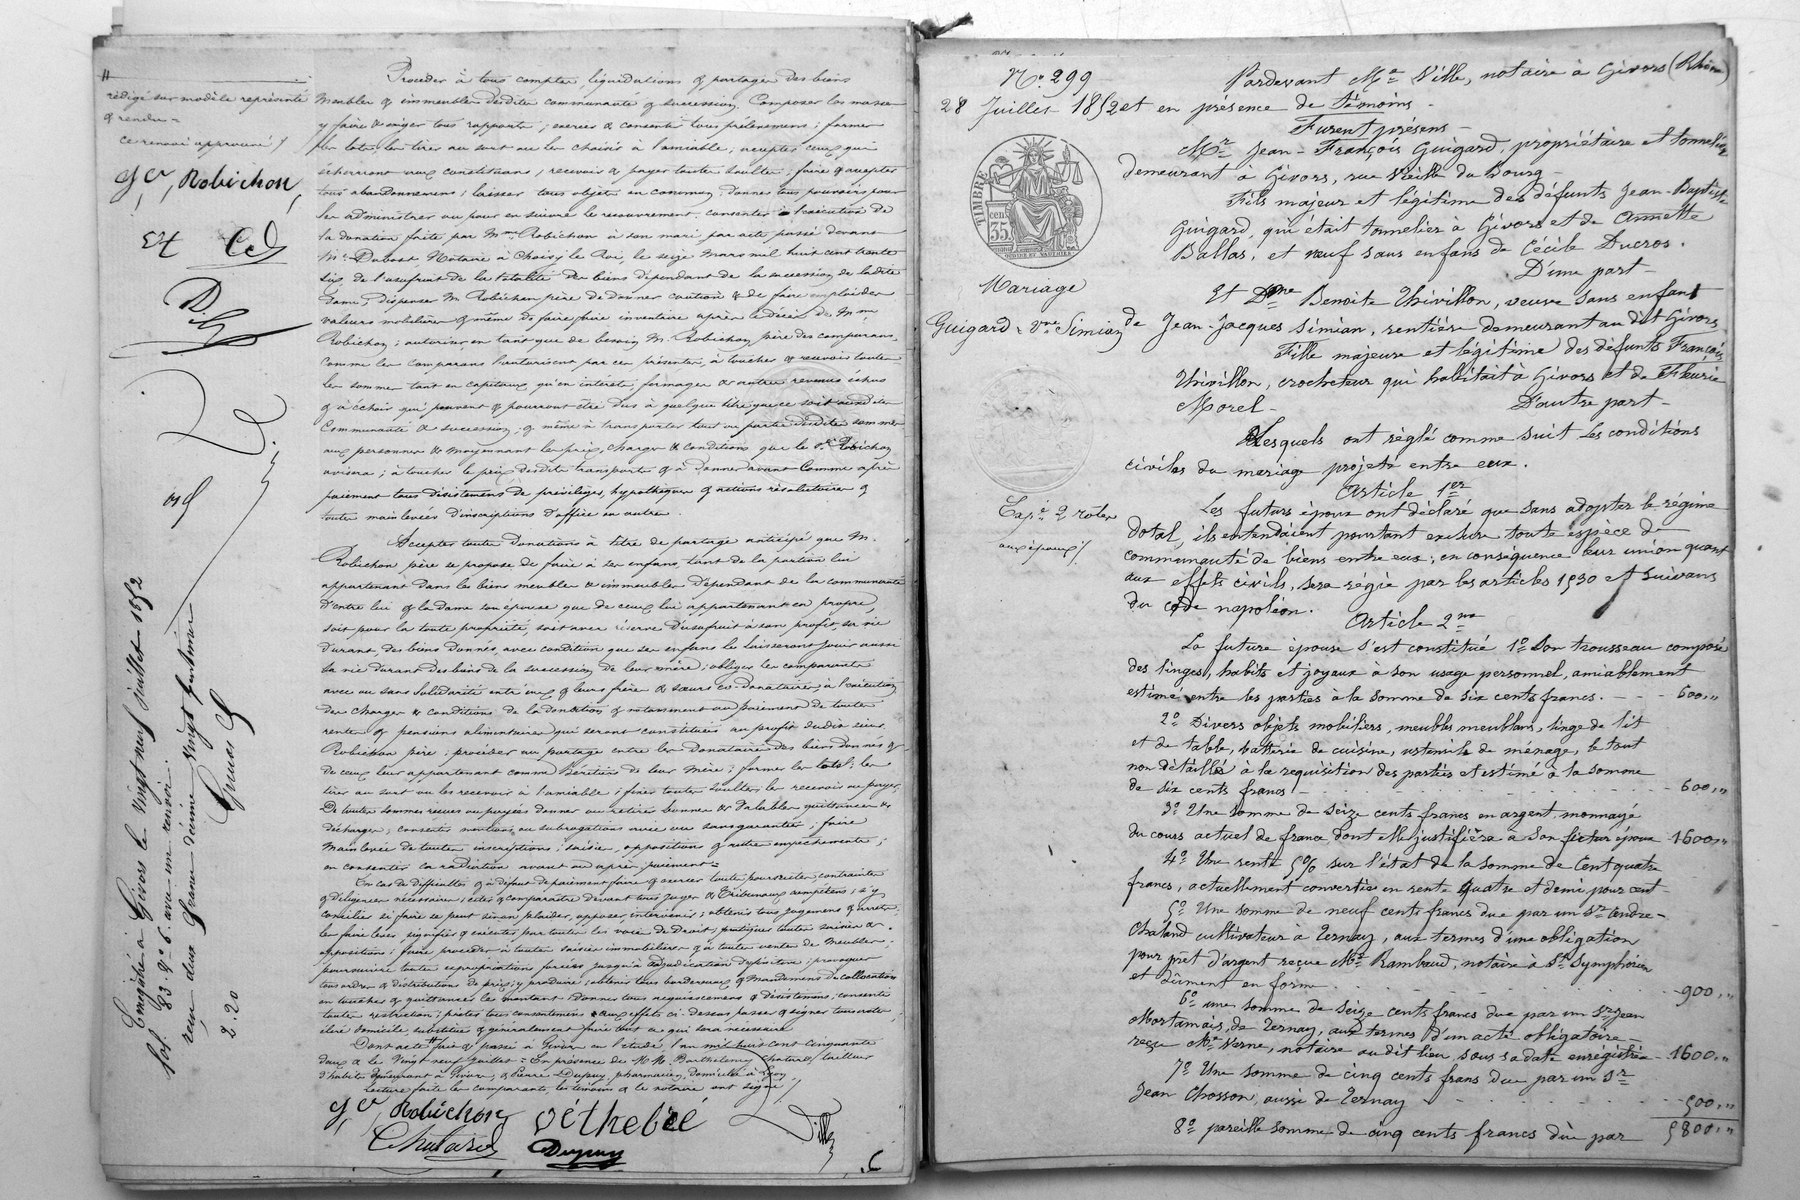 rédigé sur modèle représenté
& rendu =
ce renvoi approuvé
Robichon
Et
Procéder à tous comptes, liquidations & partages des biens
meubles & immeubles desdites communauté & succession, Composer les masses
y faire & exiger tous rapports; exercer & consentir tous prélèvemens; former
les lots, les tirer au sort ou les choisir à l'amiable; accepter ceux qui
écherront aux constituans; recevoir & payer toute soulte; faire & accepter
tous abandonnemens; laisser tous objets en commun, donner tous pouvoirs pour
les administrer ou pour en suivre le recouvrement. consentir à l'exécution de
la donation faite par Mme Robichon à son mari par acte passé devant
Me Dubost Notaire à Choisy le Roi, le seize Mars mil huit cent trente
six, de l'usufruit de la totalité des biens dépendant de la succession de ladite
Dame, dispenser M. Robichon père de donner caution & de faire emploi des
valeurs mobilières & même de faire faire inventaire après le décès de Mme
Robichon; autoriser en tant que de besoin M. Robichon père des comparans,
comme les comparans l'autorisent par ces présentes, à toucher & recevoir toutes
les sommes tant en capitaux, qu'en intérêts, fermages & autres revenus échus
& à échoir qui peuvent & pourront être dus à quelque titre que ce soit auxdites
Communauté & succession, & même à transporter tout ou partie desdites sommes
aux personnes & moyennant les prix, charges & conditions que le Sr. Robichon
avisera; à toucher le prix desdits transports & à donner avant comme après
paiement tous désistemens de privilèges, hypothèques & actions résolutoires &
toutes mainlevées d'inscriptions d'office ou autres.
Accepter toute Donations à titre de partage anticipé que M.
Robichon père se propose de faire à ses enfans, tant de la portion lui
appartenant dans les biens meubles & immeubles dépendant de la communauté
d'entre lui & la Dame son épouse que de ceux lui appartenant en propre,
soit pour la toute propriété, soit avec réserve d'usufruit à son profit, sa vie
durant, des biens donnés, avec condition que ses enfans le laisseront jouir aussi
sa vie durant des biens de la succession de leur mère; obliger les comparants
avec ou sans solidarité entr'eux & leurs frère & sœurs co-donataires, à l'exécution
des charges & conditions de la donation & notamment au paiement de toutes
rentes & pensions alimentaires qui seront constituées au profit dudit sieur
Robichon père; procéder au partage entre les Donataires des biens donnés &
de ceux leur appartenant comme héritiers de leur mère; former les lots; les
tirer au sort ou les recevoir à l'amiable; fixer toutes soultes, les recevoir ou payer,
De toutes sommes reçues ou payées donner ou retirer bonnes & valables quittances &
décharges; consentir mentions ou subrogations avec ou sans garantie; faire
mainlevée de toutes inscriptions, saisies, oppositions & autres empêchements,
en consentir la radiation avant ou après paiement=
En cas de difficultés & à défaut de paiement faire & exercer toutes poursuites contraintes
& diligences nécessaires; citer & comparaître devant tous juges & Tribunaux compétens; s'y
concilier si faire se peut sinon plaider, opposer, intervenir; obtenir tous jugemens & arrêts,
les faire lever, signifier & exécuter par toutes les voies de Droit; pratiquer toutes saisies &
oppositions; faire procéder à toutes saisies immobilières & à toutes ventes de meubles;
poursuivre toutes expropriations forcées jusqu'à adjudication définitive; provoquer
tous ordres & distributions de prix; y produire; obtenir tous bordereaux & Mandemens de collocations
en toucher & quittancer les montant: donner tous acquiescemens & désistemens; consentir
toutes restriction; prêter tous consentemens aux effets ci-dessus passer & signer tous actes,
élire domicile, substituer & généralement faire tout ce qui sera nécessaire
Dont acte fait & passé à Givors en l'étude l'an mil huit cent cinquante
deux & le vingt neuf juillet = En présence de MM. Barthélemy Chatard, tailleur
d'habits demeurant à Givors, & Pierre Dupuy pharmacien, domicilié à Lyon
Lecture faite les comparants, les témoins & le notaire ont signé
Robichon Véthebré
Chatard Dupuy
Enregistré à Givors le vingt neuf juillet 1852
fol. 83 Vo c. 6. avec un renvoi.
reçu deux francs décime vingt centimes
2.20
No. 299
28 Juillet 1852
TIMBRE
35
Mariage
Guigard & vve Simian
Expe 2 roles
aux époux
Pardevant Me Ville, notaire à Givors (Rhône)
et en présence de témoins -
Furent présens -
Mr. Jean-François Guigard, propriétaire et tonnelier
demeurant à Givors, rue Vieille du Bourg -
Fils majeur et légitime des défunts Jean-Baptiste
Guigard, qui était tonnelier à Givors et de Annette
Ballas, et veuf sans enfans de Cécile Ducros.
D'une part -
Et Dme Benoite Thivillon, veuve sans enfant
de Jean-Jacques Simian, rentière demeurant audit Givors
Fille majeure et légitime des défunts François
Thivillon, crocheteur qui habitait à Givors et de Fleurie
Morel - D'autre part -
Lesquels ont règlé comme suit les conditions
civiles du mariage projeté entre eux.
Article 1er
Les futurs époux ont déclaré que sans adopter le régime
dotal, ils entendaient pourtant exclure toute espèce de
communauté de biens entre eux; en conséquence leur union quant
aux effets civils, sera régie par les articles 1530 et suivans
du code napoléon.
Article 2me
La future épouse s'est constitué 1o Son trousseau composé
des linges, habits et joyaux à son usage personnel, amiablement
estimé entre les parties à la somme de six cents francs. - - - 600,,
2o Divers objets mobiliers, meubles meublans, linge de lit
et de table, batterie de cuisine, ustensils de ménage, le tout
non détaillés à la requisition des parties et estimé à la somme
de six cents francs - - - - - 600,,
3o Une somme de seize cents francs en argent monnayé
du cours actuel de france dont elle justifiera à son futur époux - 1600,,
4o Une rente 5% sur l'état de la somme de Cent quatre
francs, actuellement convertie en rente quatre et demi pour cent -
5o Une somme de neuf cents francs due par un Sr André-
Chaland cultivateur à Ternay, aux termes d'une obligation
pour prêt d'argent reçue Me Rambaud, notaire à St Symphorien
et dûment en forme . . . . . 900,,
6o une somme de seize cents francs due par un Sr Jean
Mortamais, de Ternay, aux termes d'un acte obligatoire
reçu Me Verne, notaire audit lieu, sous sa date enregistrée - 1600,,
7o Une somme de cinq cents frans due par un Sr
Jean Chosson, aussi de Ternay - - - - 500,,
5800,,
8o pareille somme de cinq cents francs düe par